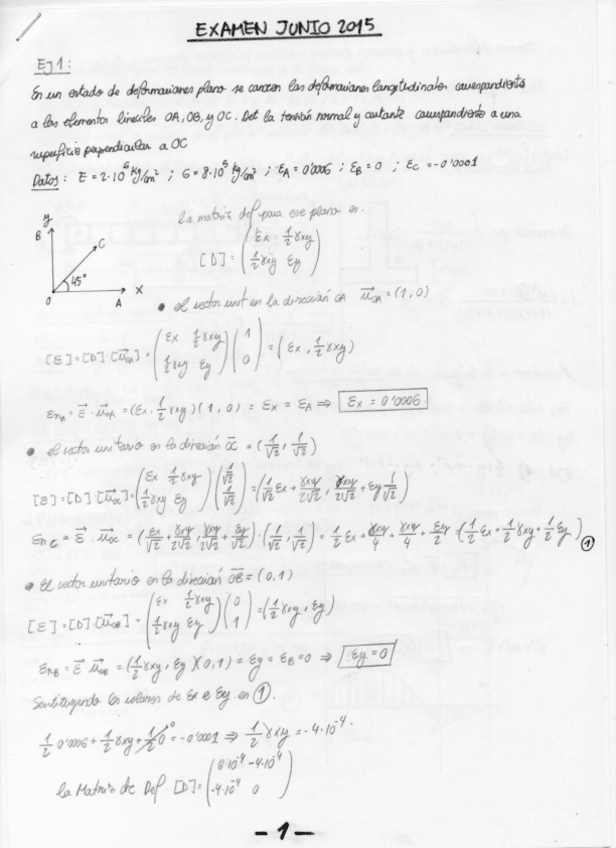 EXAMEN JUNIO 2015
Ej 1:
En un estado de deformaciones plano se conocen las deformaciones longitudinales correspondientes
a los elementos lineales OA, OB, y OC. Det la tensión normal y cortante correspondiente a una
superficie perpendicular a OC
Datos: E = 2·10⁶ kg/cm² ; G = 8·10⁵ kg/cm² ; εA = 0'0006 ; εB = 0 ; εC = -0'0001
y
B
C
45°
O
A
X
la matriz def para ese plano es:
[D] = (εx ½γxy
½γxy εy)
• el vector unit en la dirección OA u⃗OA = (1,0)
[ε] = [D]·[u⃗OA] = (εx ½γxy
½γxy εy) (1
0) = (εx, ½γxy)
εnA = ε⃗·u⃗OA = (εx, ½γxy)(1,0) = εx = εA ⇒ εx = 0'0006
• el vector unitario en la dirección OC = (1/√2, 1/√2)
[ε] = [D]·[u⃗OC] = (εx ½γxy
½γxy εy) (1/√2
1/√2) = (1/√2 εx + γxy/2√2, γxy/2√2 + εy 1/√2)
εnC = ε⃗·u⃗OC = (εx/√2 + γxy/2√2, γxy/2√2 + εy/√2)·(1/√2, 1/√2) = ½εx + γxy/4 + γxy/4 + εy/2 = (½εx + ½γxy + ½εy) ①
• El vector unitario en la dirección OB = (0,1)
[ε] = [D]·[u⃗OB] = (εx ½γxy
½γxy εy) (0
1) = (½γxy, εy)
εnB = ε⃗·u⃗OB = (½γxy, εy)(0,1) = εy = εB = 0 ⇒ εy = 0
Sustituyendo los valores de εx e εy en ①.
½ 0'0006 + ½γxy + ½0 = -0'0001 ⇒ ½γxy = -4·10⁻⁴.
0
la Matriz de Def. [D] = (6·10⁻⁴ -4·10⁻⁴
-4·10⁻⁴ 0)
- 1 -